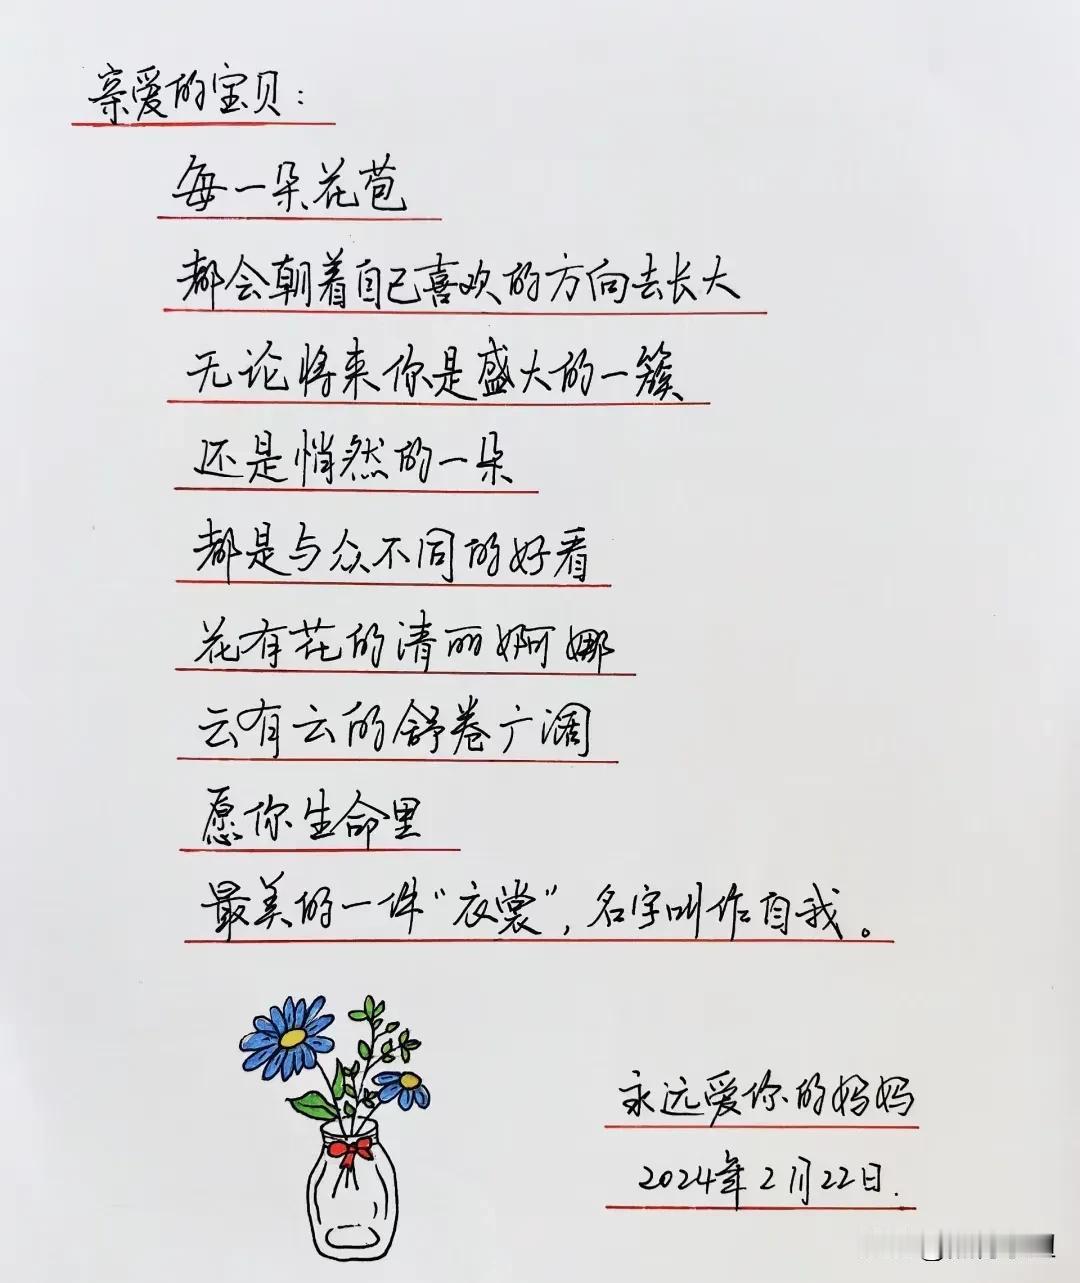 亲爱的宝贝：
每一朵花苞
都会朝着自己喜欢的方向去长大
无论将来你是盛大的一簇
还是悄然的一朵
都是与众不同的好看
花有花的清丽婀娜
云有云的舒卷广阔
愿你生命里
最美的一件“衣裳”，名字叫作自我。
永远爱你的妈妈
2024年2月22日.